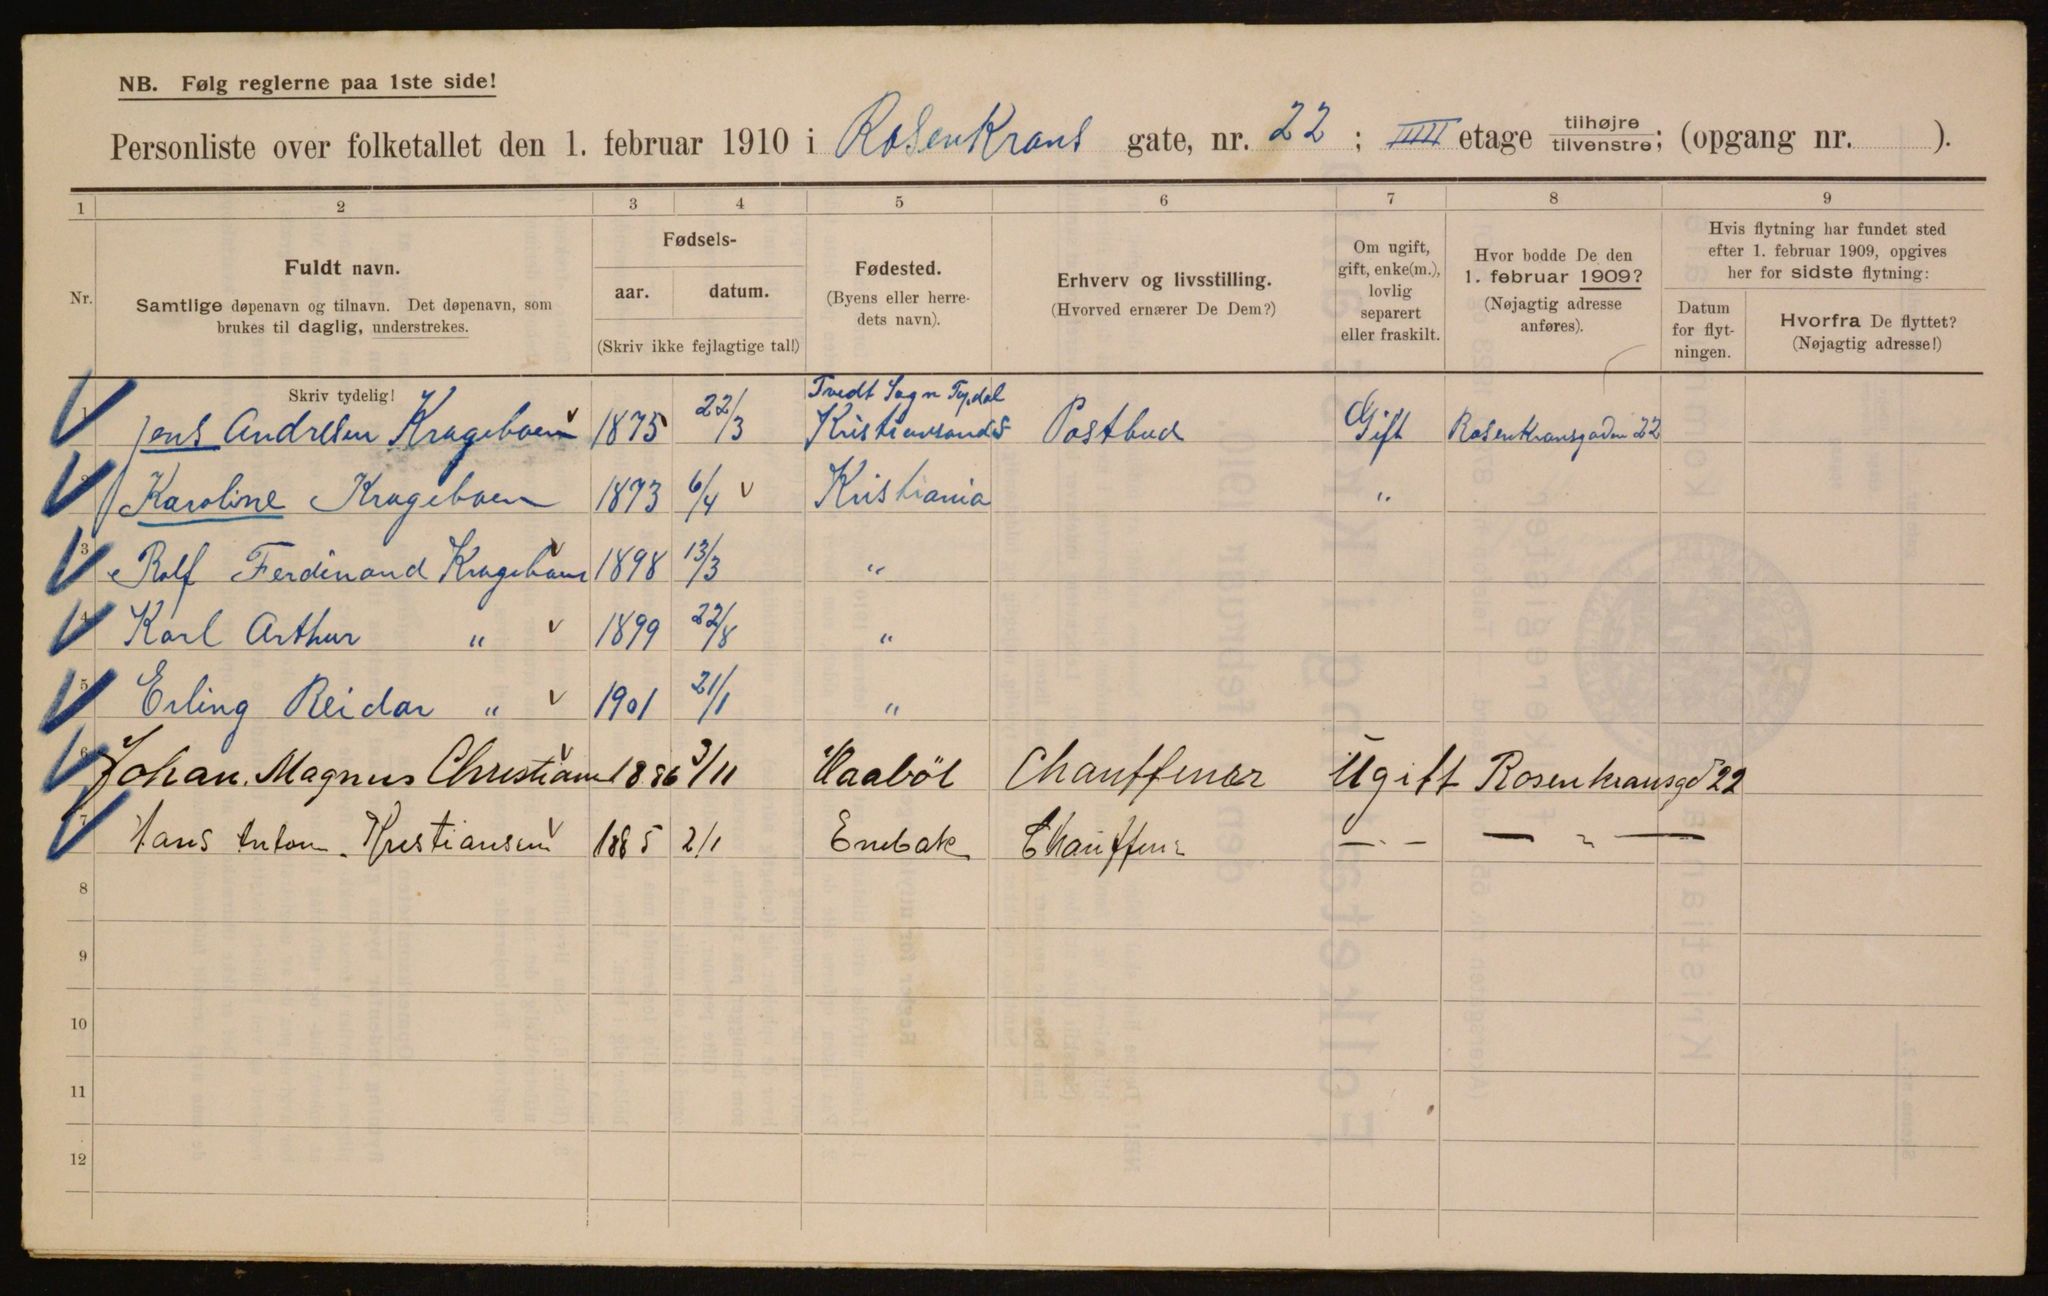 NB. Følg reglerne paa 1ste side!
Personliste over folketallet den 1. februar 1910 i RosenKrans gate, nr. 22; IIIII etage tilhøjre/tilvenstre; (opgang nr. ).
1 2 3 4 5 6 7 8 9
Nr.
Fuldt navn.
Samtlige døpenavn og tilnavn. Det døpenavn, som
brukes til daglig, understrekes.
Fødsels-
aar. datum.
(Skriv ikke fejlagtige tal!)
Fødested.
(Byens eller herre-
dets navn).
Erhverv og livsstilling.
(Hvorved ernærer De Dem?)
Om ugift,
gift, enke(m.),
lovlig
separert
eller fraskilt.
Hvor bodde De den
1. februar 1909?
(Nøjagtig adresse
anføres).
Hvis flytning har fundet sted
efter 1. februar 1909, opgives
her for sidste flytning:
Datum
for flyt-
ningen.
Hvorfra De flyttet?
(Nøjagtig adresse!)
Skriv tydelig!
Tvedt Sogn
1 Jens Andresen Krageboen 1875 22/3 Kristiansands Postbud Gift Rosenkransgaden 22
2 Karoline Krageboen 1873 6/4 Kristiania "
3 Rolf Ferdinand Krageboen 1898 13/3 "
4 Karl Arthur " 1899 22/8 "
5 Erling Reidar " 1901 21/1 "
6 Johan. Magnus Christians 1886 3/11 Haaböl Chauffuær Ugift Rosenkransgd 22
7 Hans Anton Kristiansen 1885 2/1 Enebak Chauffeur — " — — " —
8
9
10
11
12